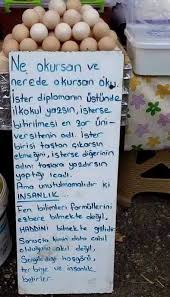 Ne okursan ve
nerede okursan oku.
ister diplomanın üstünde
ilkokul yazsın, isterse
bitirilmesi en zor üni-
versitenin adı. İster
birisi taştan çıkarsın
ekmeğini, isterse diğerinin
adını taşlara yazdırsın
yaptığı icadı.
Ama unutulmamalıdır ki
İNSANLIK...
Fen bilimleri formüllerini
ezbere bilmekte değil,
HADDİNİ bilmekte gizlidir.
Sonuçta kimin daha cahil
olduğunu okul değil
Sevgi, saygı, hoşgörü,
terbiye ve insanlık
belirler.